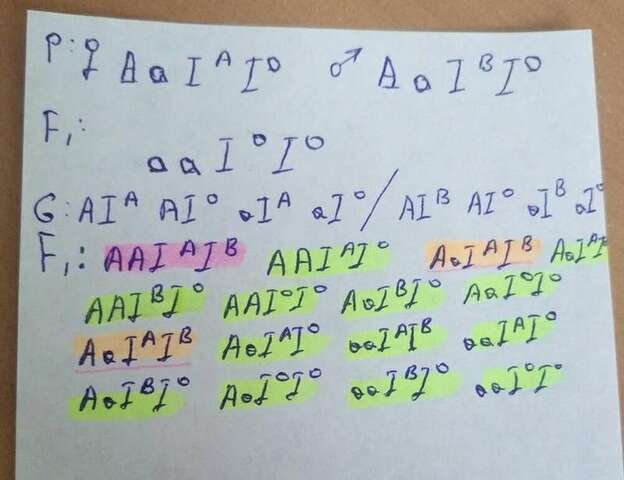 P: ♀ AaIᴬIᴼ ♂ AaIᴮIᴼ
F₁:
aaIᴼIᴼ
G: AIᴬ AIᴼ aIᴬ aIᴼ / AIᴮ AIᴼ aIᴮ aIᴼ
F₁: AAIᴬIᴮ AAIᴬIᴼ AaIᴬIᴮ AaIᴬI
AAIᴮIᴼ AAIᴼIᴼ AaIᴮIᴼ AaIᴼIᴼ
AaIᴬIᴮ AaIᴬIᴼ aaIᴬIᴮ aaIᴬIᴼ
AaIᴮIᴼ AaIᴼIᴼ aaIᴮIᴼ aaIᴼIᴼ